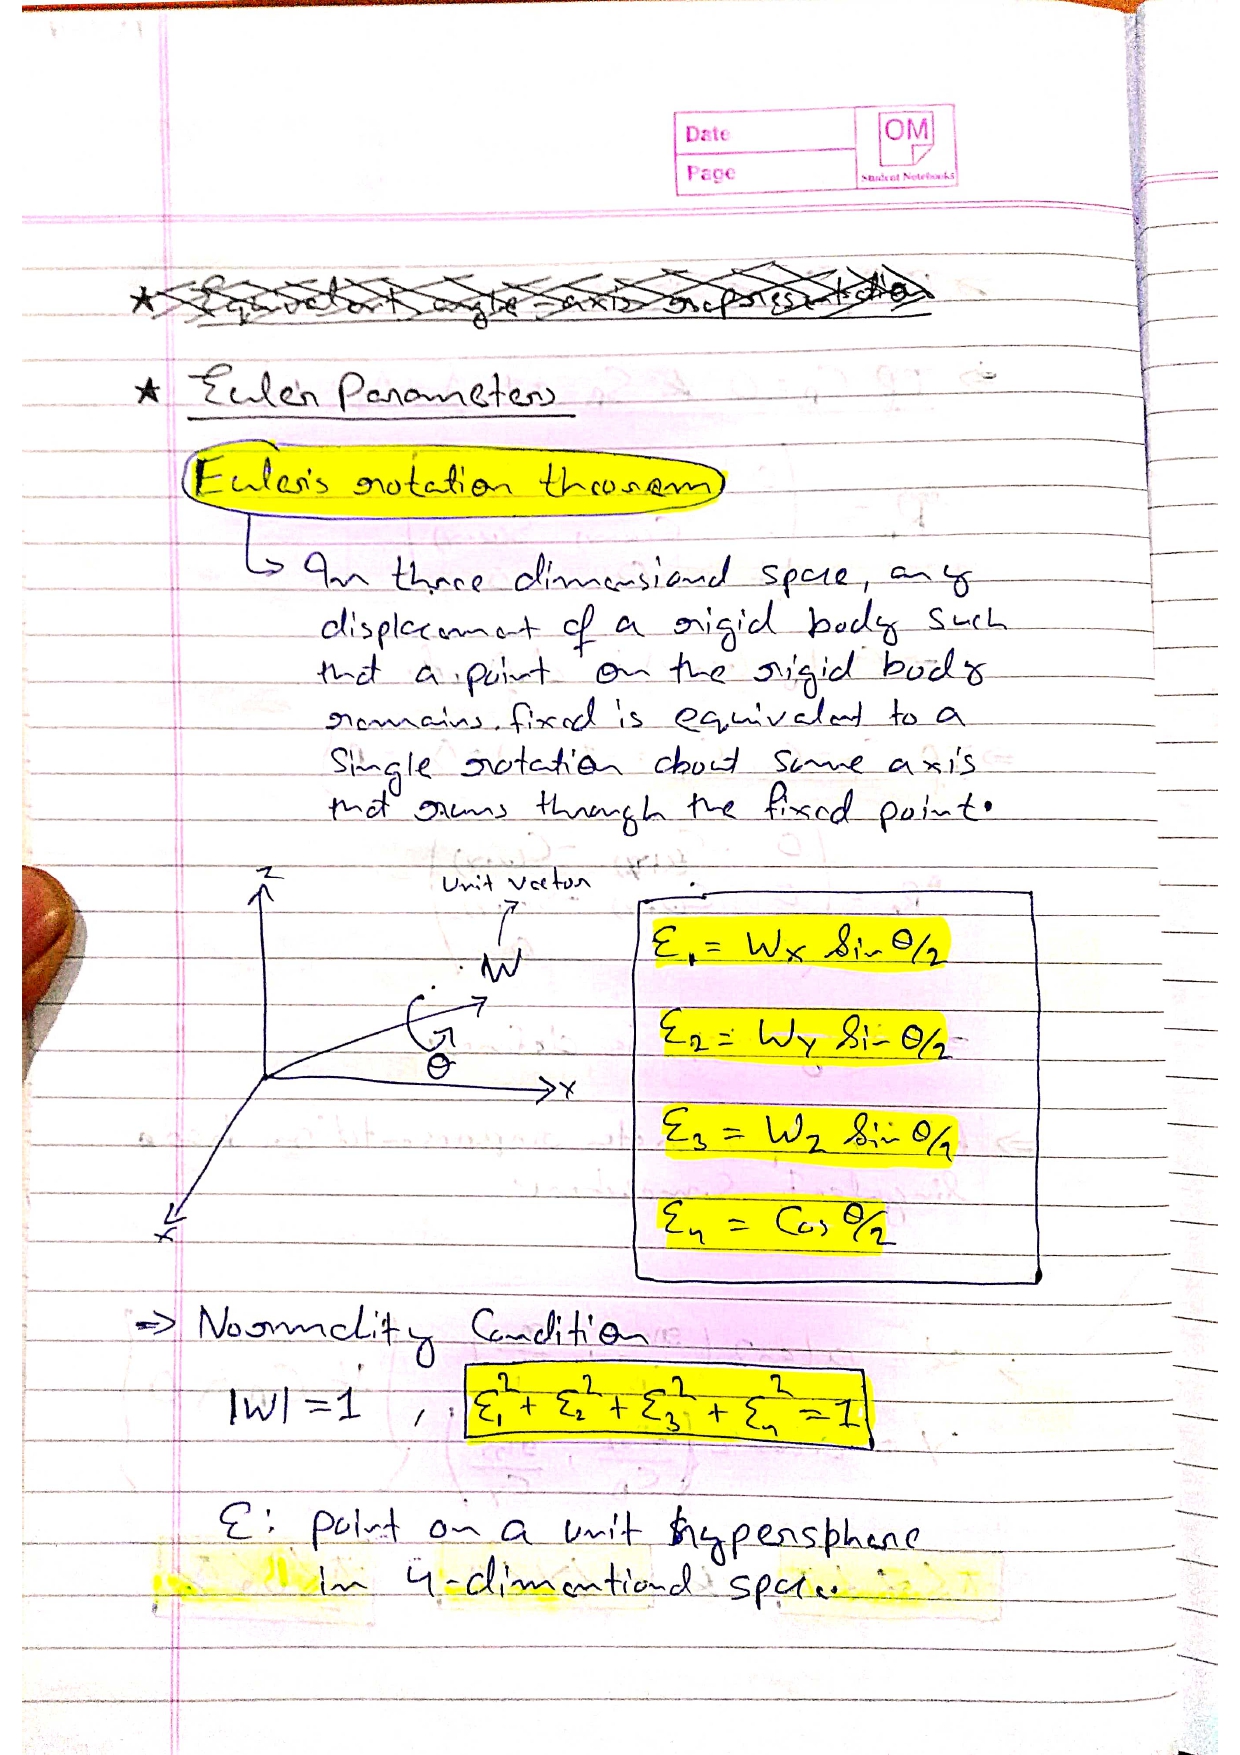 Date
Page
OM
Student Notebooks
★ Equivalent angle-axis representation
★ Euler Parameters
Euler's rotation theorem
↳ In three dimensional space, any
displacement of a rigid body such
that a point on the rigid body
remains fixed is equivalent to a
Single rotation about some axis
that runs through the fixed point.
Z
Unit vector
W
θ
X
X
ε₁ = Wx Sin θ/2
ε₂ = Wy Sin θ/2
ε₃ = Wz Sin θ/2
ε₄ = Cos θ/2
⇒ Normality Condition
|W| = 1 , ε₁² + ε₂² + ε₃² + ε₄² = 1
ε: point on a unit hypersphere
in 4-dimentional space.